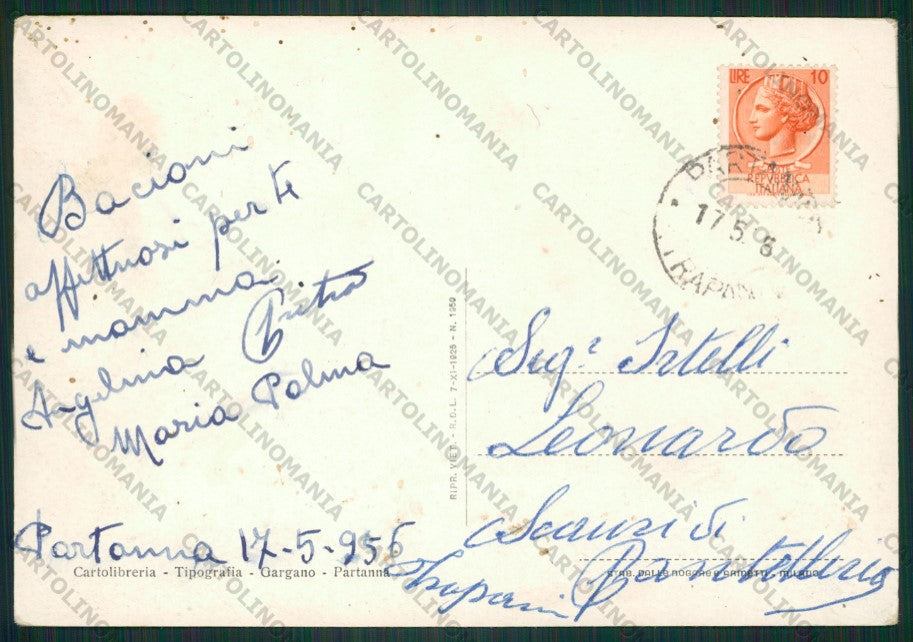 Bacioni
affettuosi per te
e mamma
Angelina Pietro
Maria Palma
Partanna 17-5-956
Cartolibreria - Tipografia - Gargano - Partanna
RIPR. VIET. - R.D.L. 7-XI-1925 - N. 1950
LIRE 10
REPVBBLICA
ITALIANA
PARTANNA
17 5
TRAPANI
Sigr
Leonardo
Scauri di
Pantelleria
Trapani
CARTOLINOMANIA